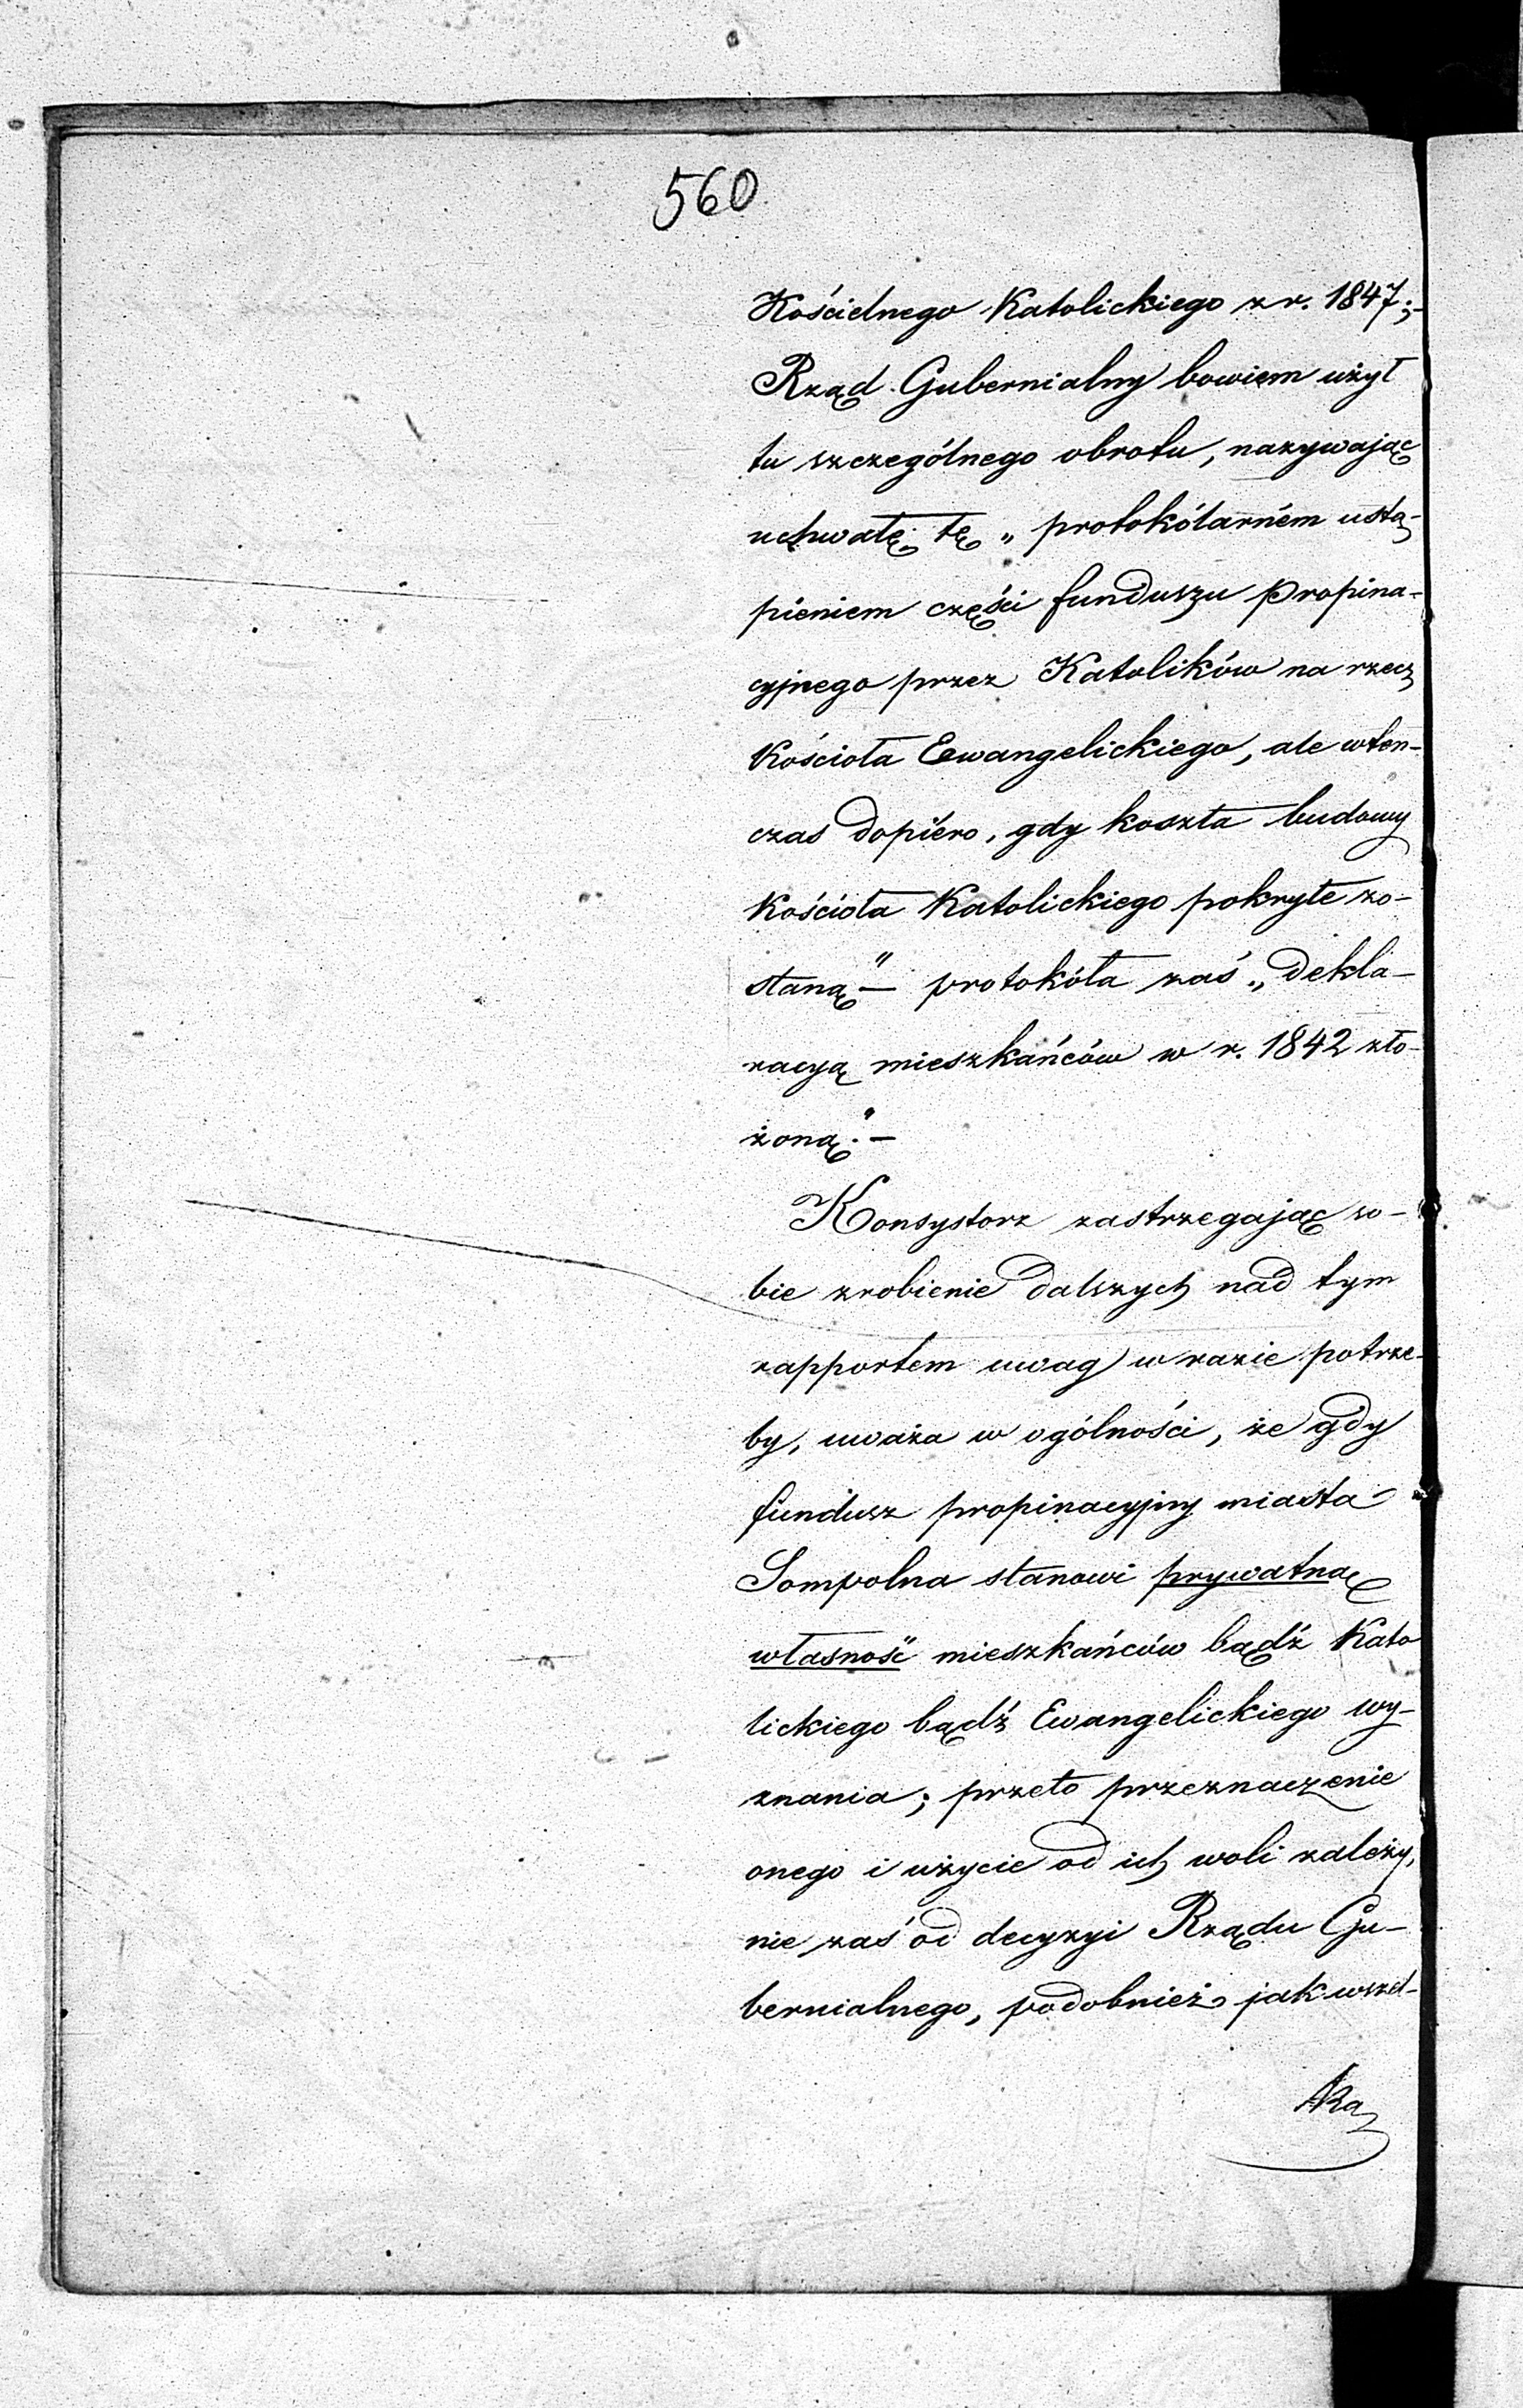 560
Kościelnego Katolickiego z r. 1847;-
Rząd Gubernialny bowiem użył
tu szczególnego obrotu, nazywając
uchwałę tę „protokólarném ustą-
pieniem części funduszu Propina-
cyjnego przez Katolików na rzecz
Kościoła Ewangelickiego, ale wten-
czas dopiéro, gdy koszta budowy
Kościoła Katolickiego pokryte zo-
staną" — protokóła zaś „dekla-
racyą mieszkańców w r. 1842 zło-
żoną." —
Konsystorz zastrzegając so-
bie zrobienie dalszych nad tym
rapportem uwag w razie potrze-
by, uważa w ogólności, że gdy
fundusz propinacyjny miasta
Sompolna stanowi prywatną
własność mieszkańców bądź Kato
lickiego bądź Ewangelickiego wy-
znania; przeto przeznaczenie
onego i użycie od ich woli zależy,
nie zaś od decyzyi Rządu Gu-
bernialnego, podobnież jak wszel-
ka